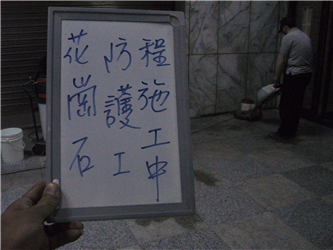 花崗石
防護工
程施工中